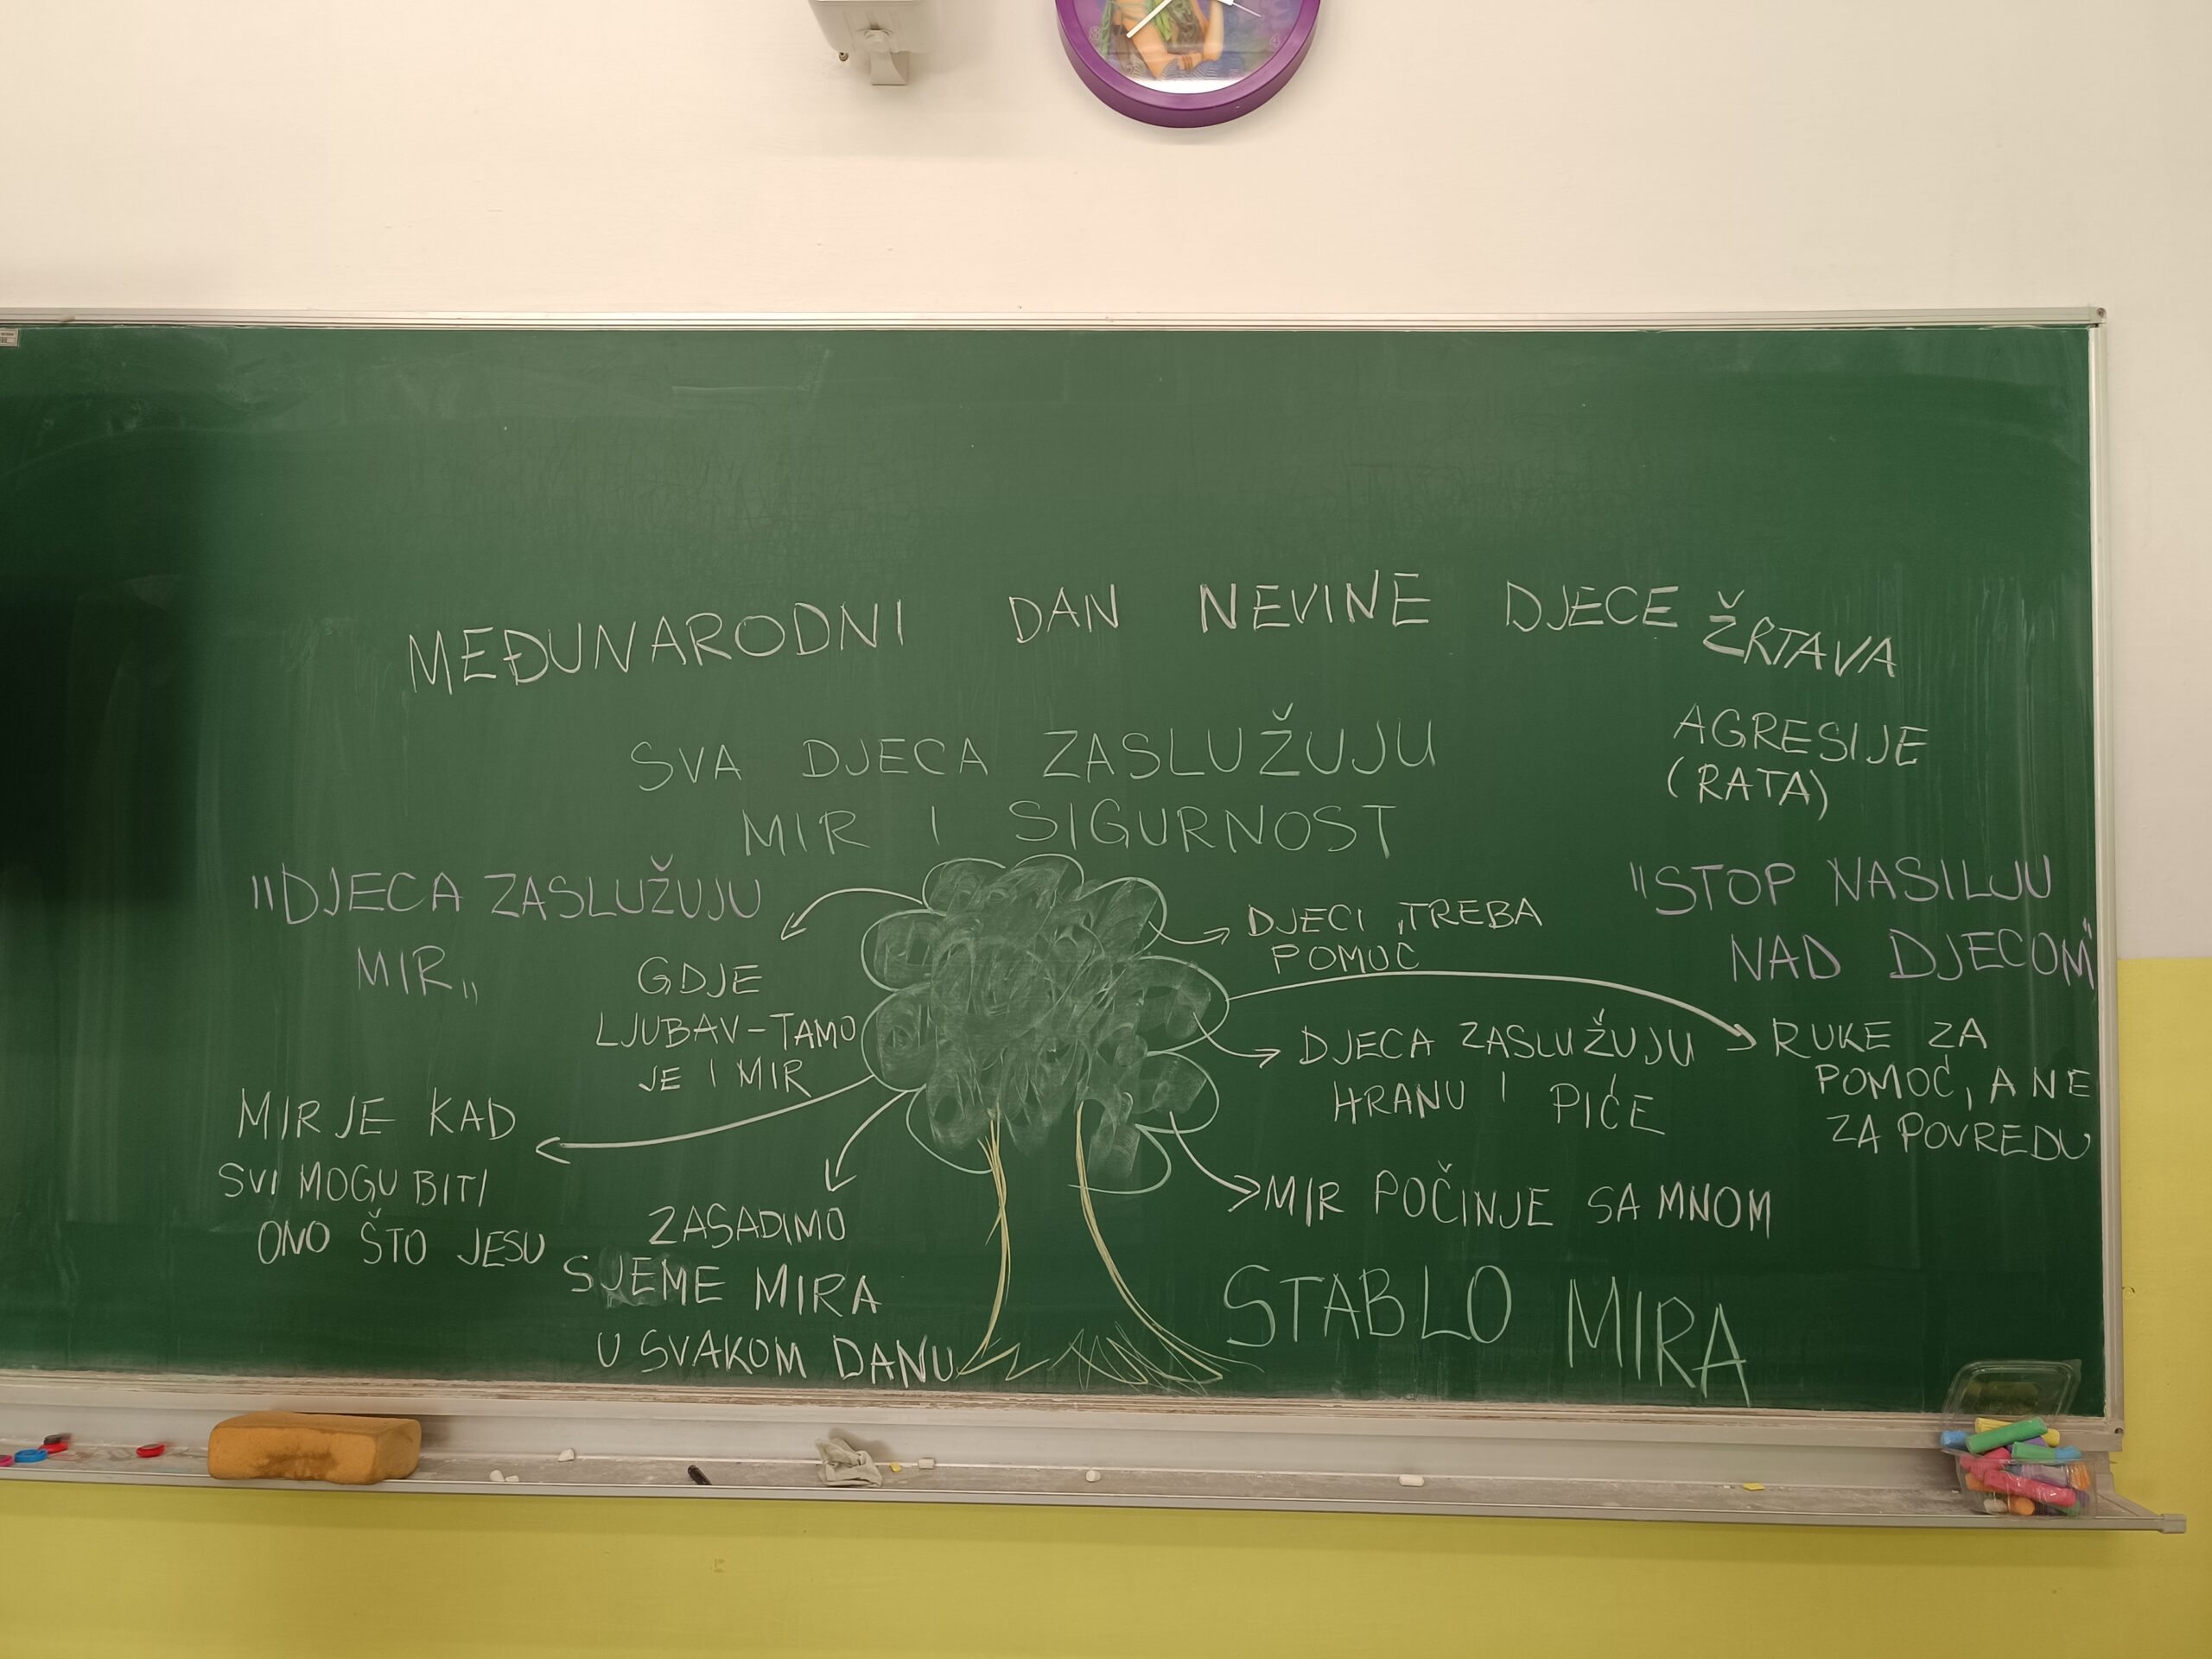 MEĐUNARODNI DAN NEVINE DJECE ŽRTAVA
AGRESIJE
(RATA)
SVA DJECA ZASLUŽUJU
MIR I SIGURNOST
"DJECA ZASLUŽUJU
MIR"
GDJE
LJUBAV-TAMO
JE I MIR
MIR JE KAD
SVI MOGU BITI
ONO ŠTO JESU
ZASADIMO
SJEME MIRA
U SVAKOM DANU
DJECI TREBA
POMOĆ
"STOP NASILJU
NAD DJECOM"
DJECA ZASLUŽUJU
HRANU I PIĆE
RUKE ZA
POMOĆ, A NE
ZA POVREDU
MIR POČINJE SA MNOM
STABLO MIRA